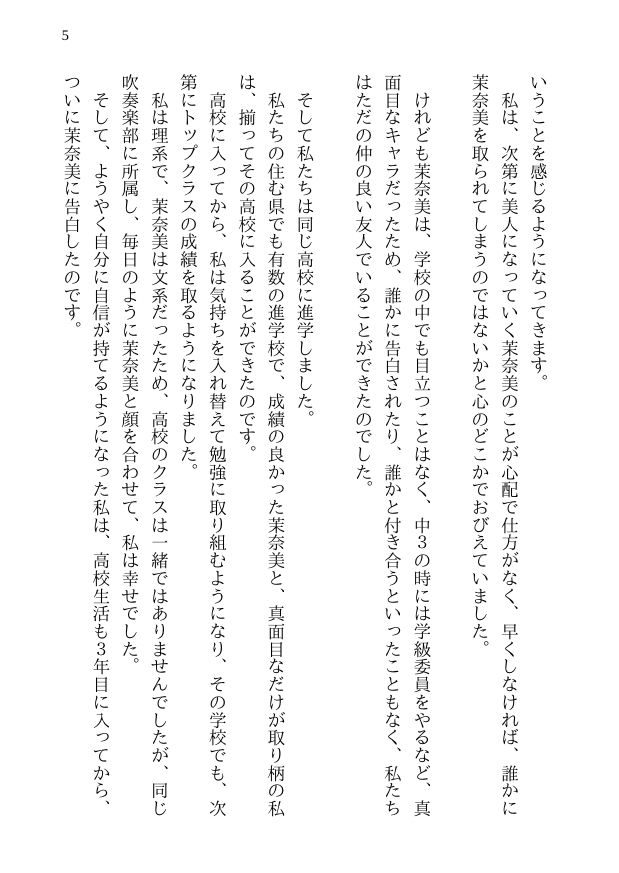 5
いうことを感じるようになってきます。
私は、次第に美人になっていく茉奈美のことが心配で仕方がなく、早くしなければ、誰かに
茉奈美を取られてしまうのではないかと心のどこかでおびえていました。
けれども茉奈美は、学校の中でも目立つことはなく、中３の時には学級委員をやるなど、真
面目なキャラだったため、誰かに告白されたり、誰かと付き合うといったこともなく、私たち
はただの仲の良い友人でいることができたのでした。
そして私たちは同じ高校に進学しました。
私たちの住む県でも有数の進学校で、成績の良かった茉奈美と、真面目なだけが取り柄の私
は、揃ってその高校に入ることができたのです。
高校に入ってから、私は気持ちを入れ替えて勉強に取り組むようになり、その学校でも、次
第にトップクラスの成績を取るようになりました。
私は理系で、茉奈美は文系だったため、高校のクラスは一緒ではありませんでしたが、同じ
吹奏楽部に所属し、毎日のように茉奈美と顔を合わせて、私は幸せでした。
そして、ようやく自分に自信が持てるようになった私は、高校生活も３年目に入ってから、
ついに茉奈美に告白したのです。